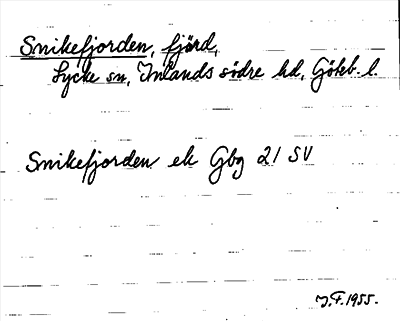 Snikefjorden, fjörd,
Lycke sn, Inlands södre hd, Göteb. l.
Snikefjorden ek Gbg 21 SV
J.F. 1955.